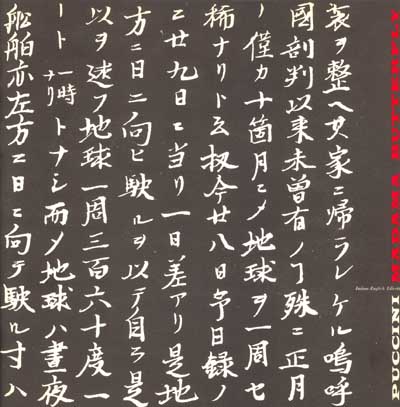 装ヲ整ヘ其家ニ帰ラレケル嗚呼
國剖判以来未曾有ノ殊ニ正月
ノ僅カ十箇月ニメ地球ヲ一周セ
稀ナリト云扨今廿八日予日録ノ
ニ廿九日ニ当リ一日差アリ是地
方ニ日ニ向ヒ駛ルヲ以テ自ラ是
以ヲ フ地球一周三百六十度一
ート一時ナリトナシ而メ地球ハ晝夜
船舶亦左方ニ日ニ向テ駛ル寸ハ
PUCCINI MADAMA BUTTERFLY
Italian-English Libretto